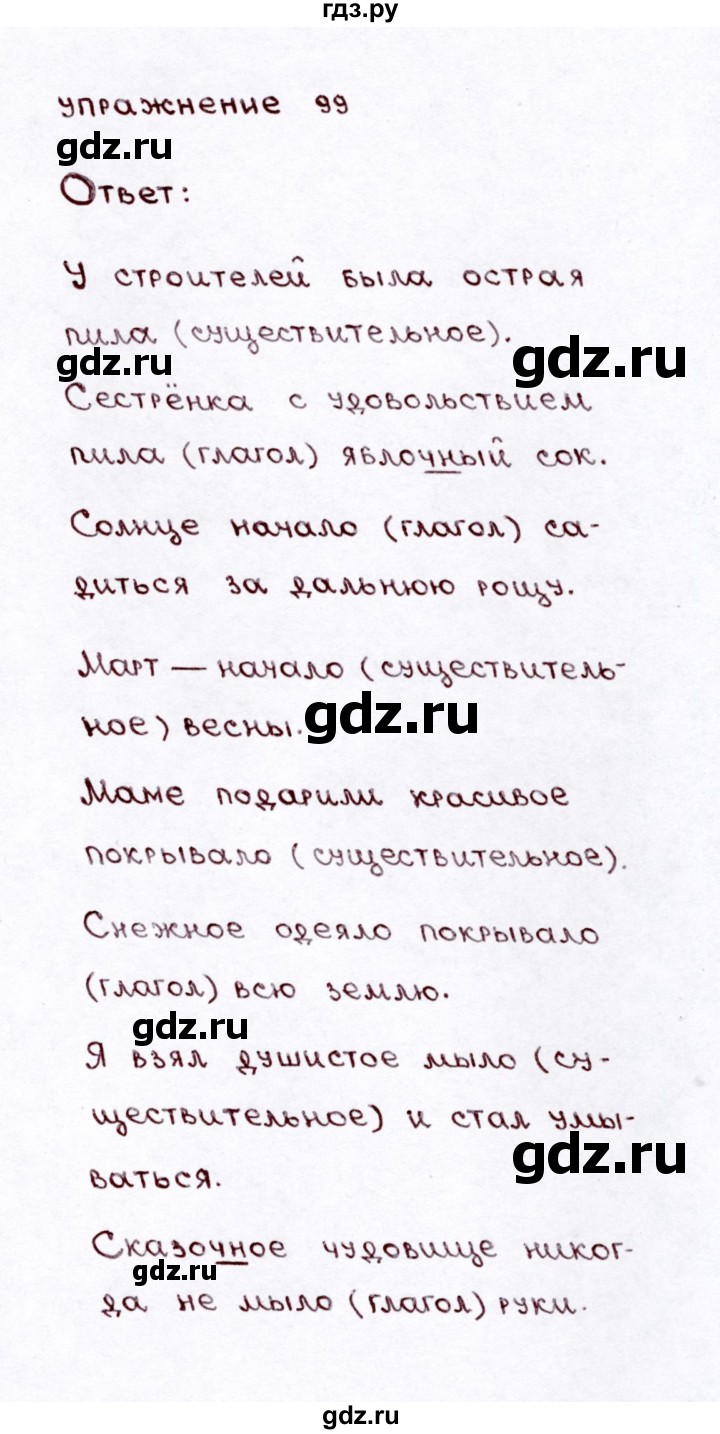 гдз.ру
упражнение 99
gdz.ru
Ответ:
У строителей была острая
пила (существительное).
gdz.ru
gdz.ru
Сестрёнка с удовольствием
пила (глагол) яблочный сок.
Солнце начало (глагол) са-
диться за дальнюю рощу.
Март — начало (существитель-
ное) весны.
gdz.ru
Маме подарили красивое
покрывало (существительное).
Снежное одеяло покрывало
(глагол) всю землю.
gdz.ru
Я взял душистое мыло (су-
ществительное) и стал умы-
ваться.
gdz.ru
Сказочное чудовище никог-
gdz.ru
да не мыло (глагол) руки.
gdz.ru